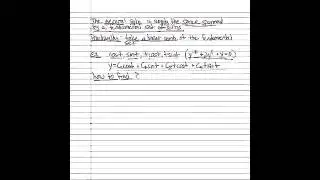 The general soln. is simply the space spanned
by a fundamental set of solns.
Practically: take a linear comb. of the fundamental
set
Ex| cost, sint, tcost, tsint (y⁽⁴⁾+2y''+y=0)
y=C₁cost+C₂sint+C₃tcost+C₄tsint
how to find?